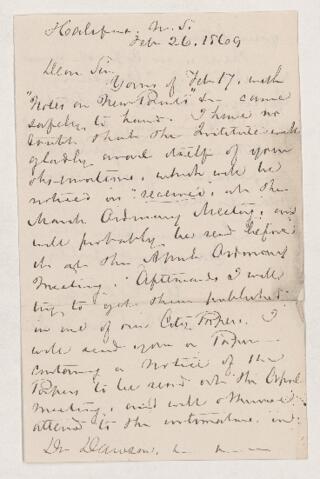 Halifax, N. S.
Feb 26, 1869
Dear Sir,
Yours of Feb 17, with
"Notes on New Points" &c came
safely to hand. I have no
doubt that the Institute will
gladly avail itself of your
observations, which will be
noticed as "received" at the
March Ordinary Meeting, and
will probably be read before
it at the April Ordinary
Meeting. Afterwards I will
try to get them published
in one of our City Papers. I
will send you a Paper
containing a notice of the
Papers to be read at the April
Meeting, and will otherwise
attend to the intimation in
Dr Dawson,